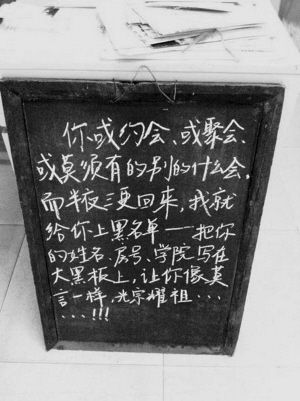 你或约会、或聚会、
或莫须有的别的什么会，
而半夜三更回来，我就
给你上黑名单——把你
的姓名、房号、学院写在
大黑板上，让你像莫
言一样，光宗耀祖····
··、!!!